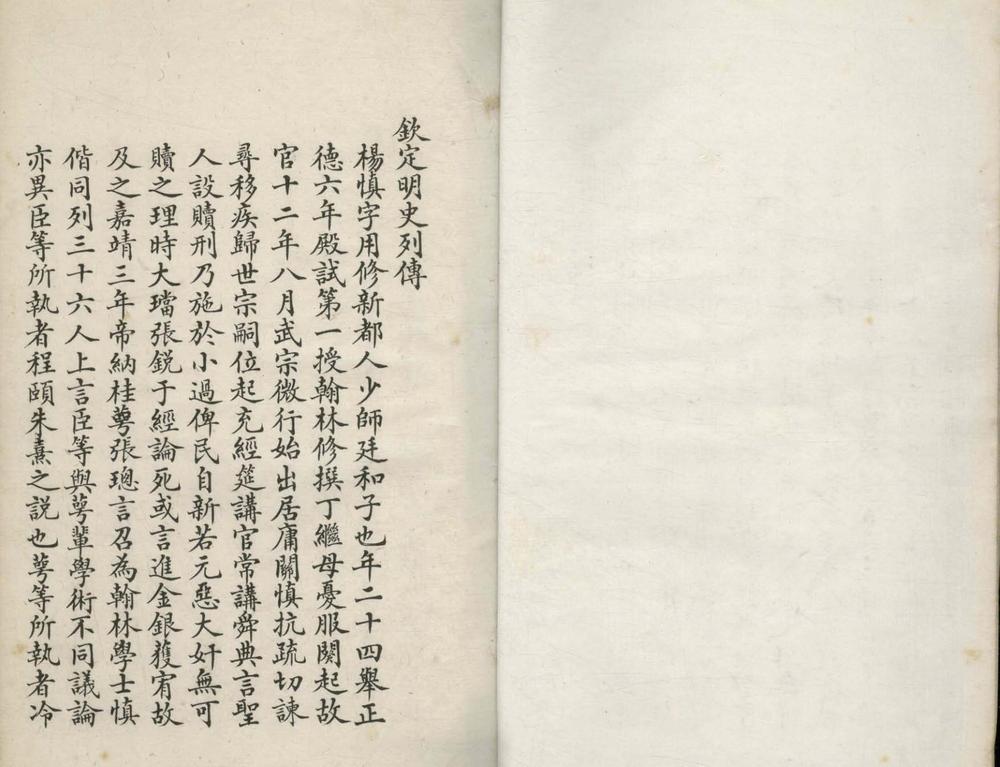 欽定明史列傳
楊慎字用修新都人少師廷和子也年二十四舉正
德六年殿試第一授翰林修撰丁繼母憂服闋起故
官十二年八月武宗微行始出居庸關慎抗疏切諫
尋移疾歸世宗嗣位起充經筵講官常講舜典言聖
人設贖刑乃施於小過俾民自新若元惡大奸無可
贖之理時大璫張銳于經論死或言進金銀獲宥故
及之嘉靖三年帝納桂萼張璁言召為翰林學士慎
偕同列三十六人上言臣等與萼輩學術不同議論
亦異臣等所執者程頤朱熹之說也萼等所執者冷